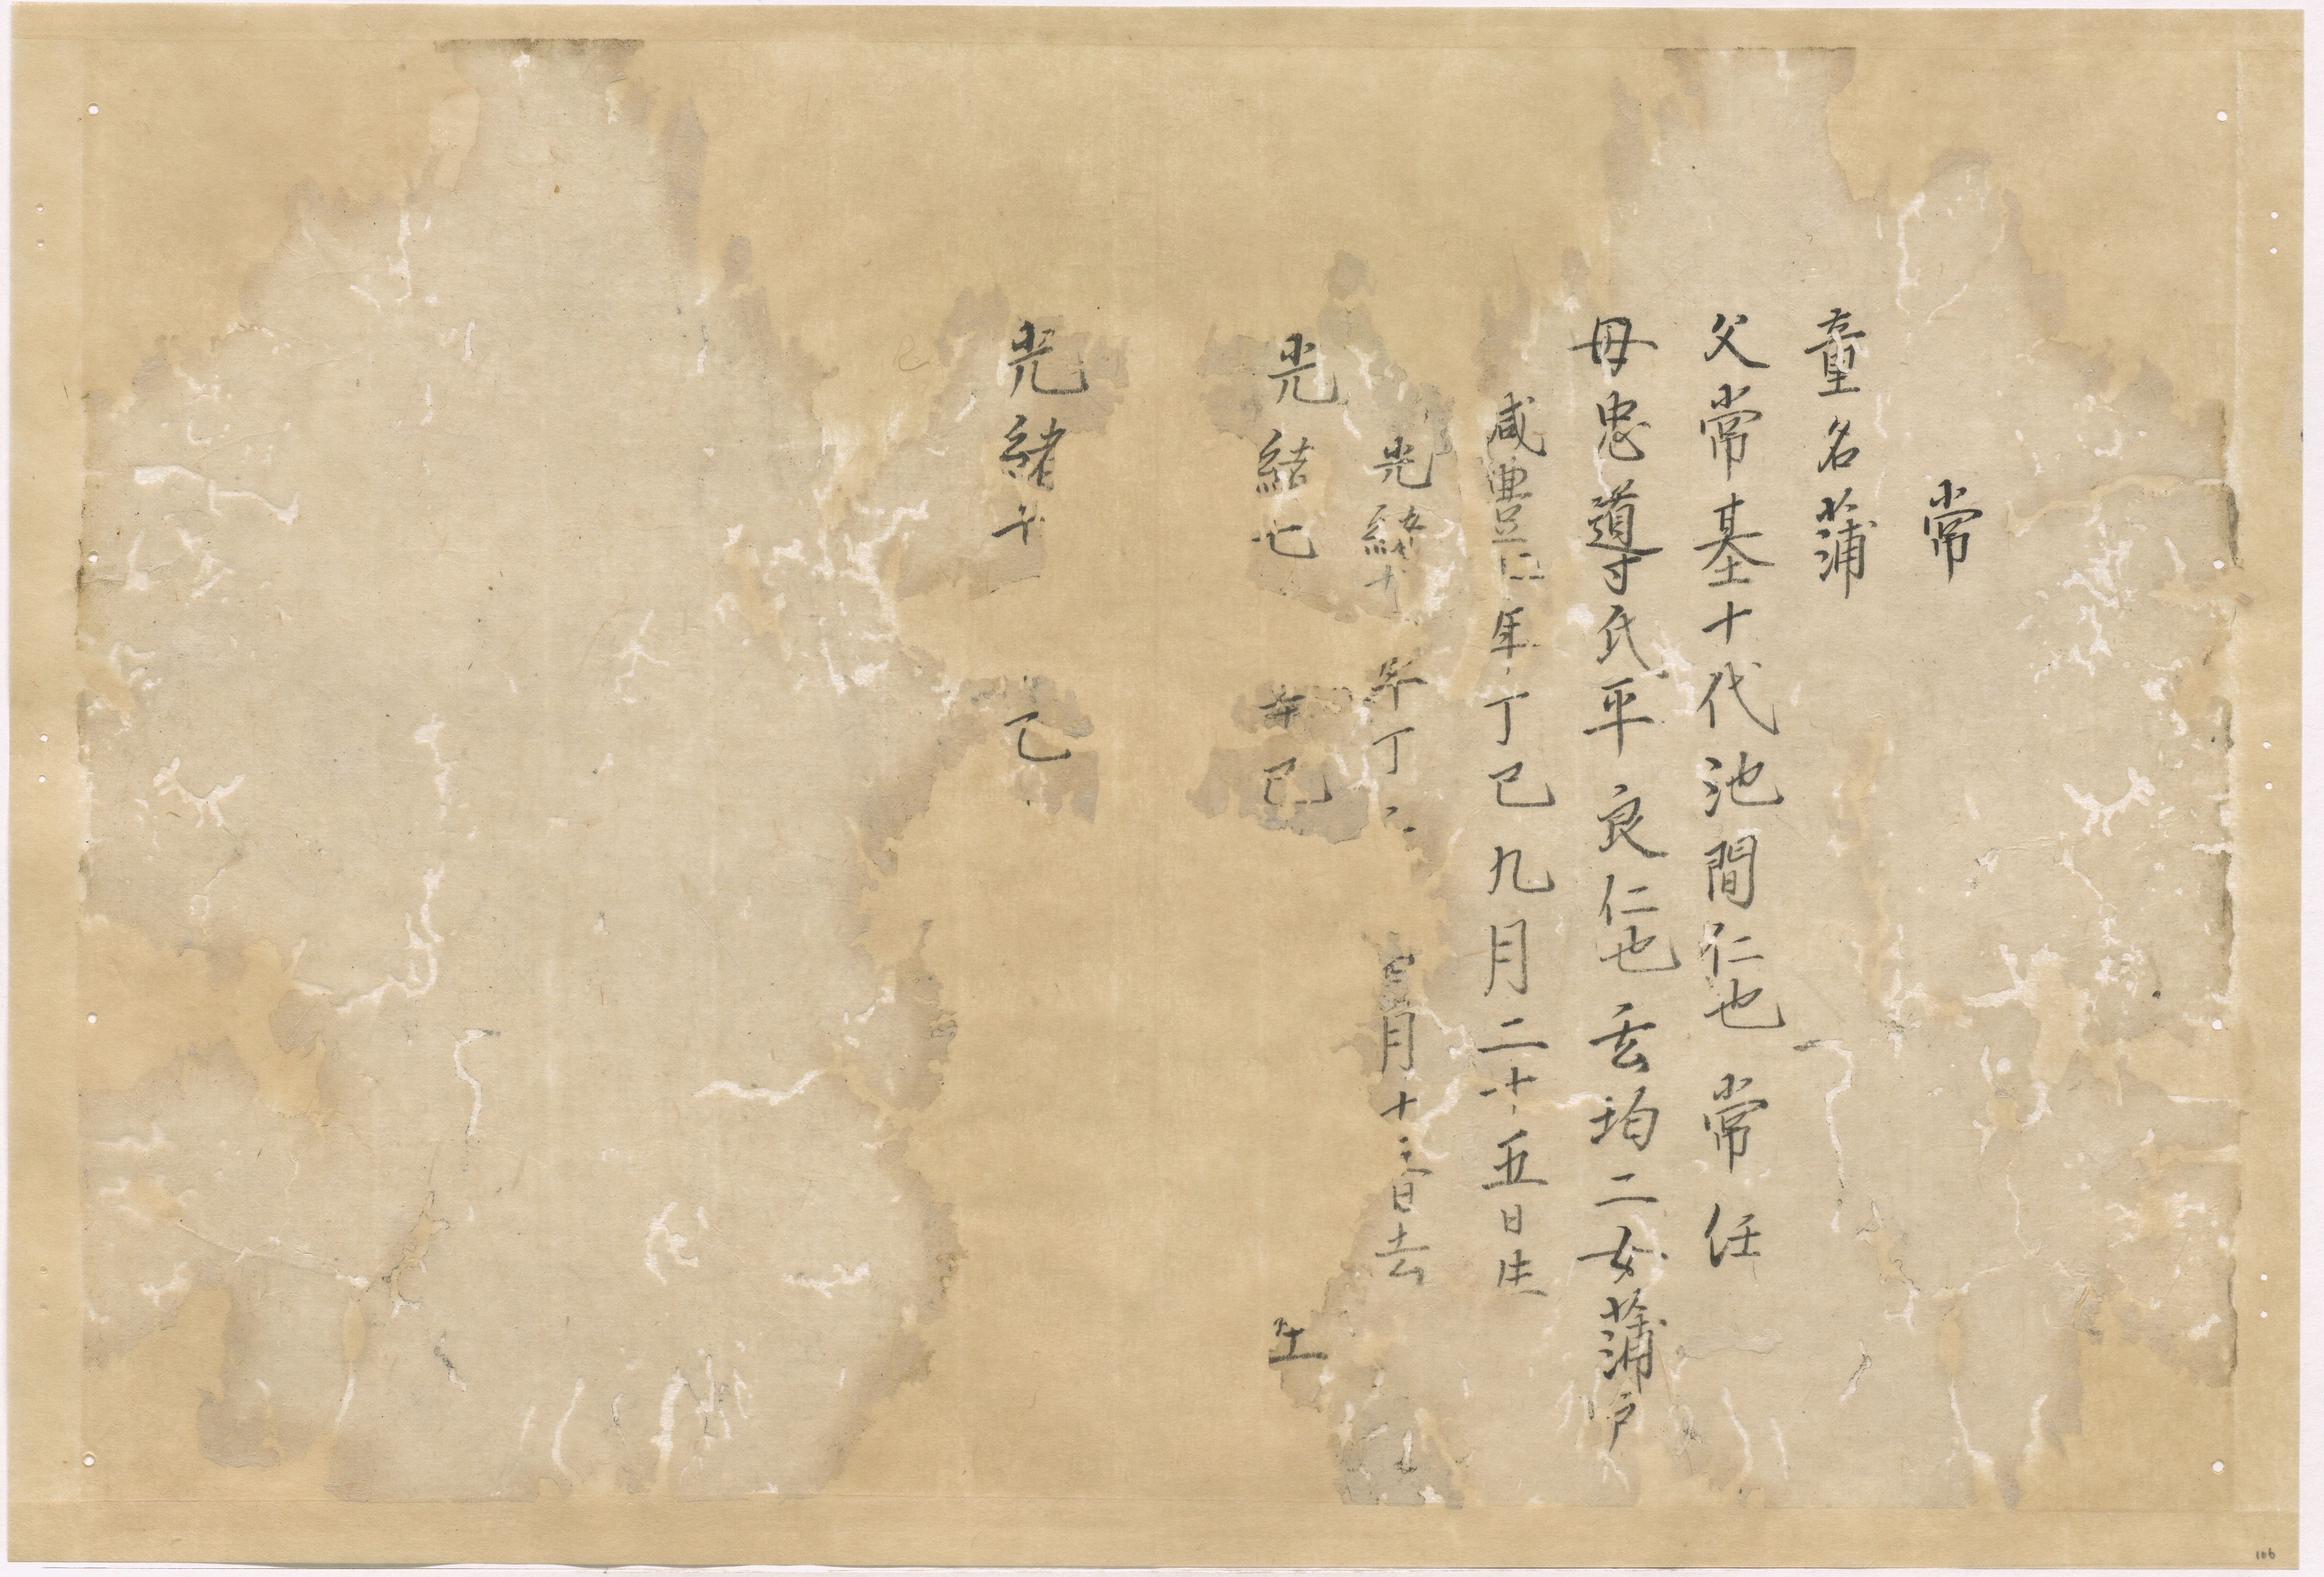 常
童名蒲
父常基十代池間仁也常任
母忠導氏平良仁也玄均二女蒲戸
咸豊七年丁巳九月二十五日生
光緒 年丁 月十 日去
光緒七 辛巳 生
光緒 年 巳
106